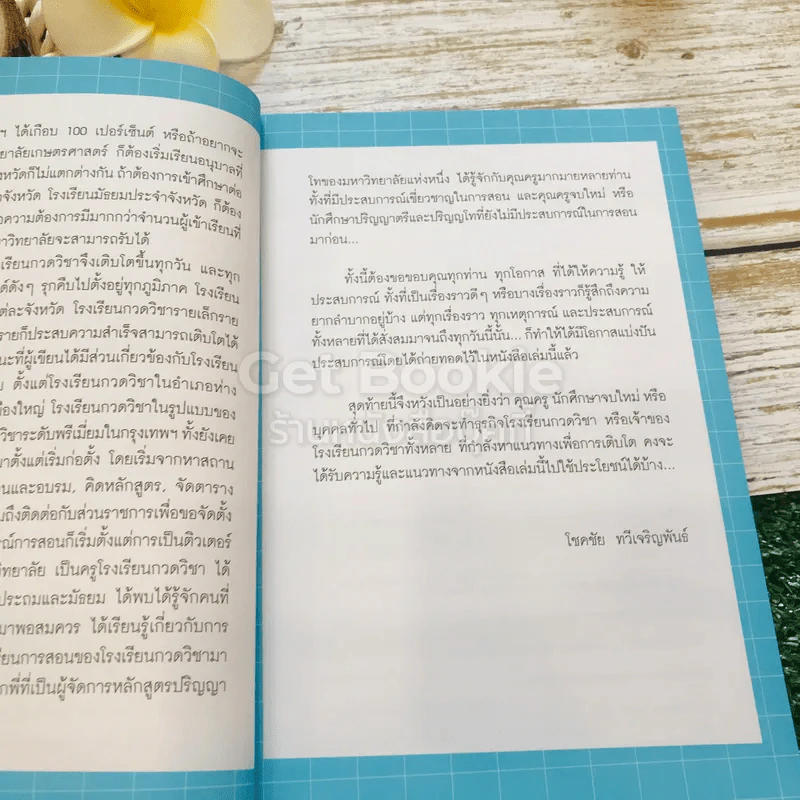 ฯ ได้เกือบ 100 เปอร์เซ็นต์ หรือถ้าอยากจะ
ยาลัยเกษตรศาสตร์ ก็ต้องเริ่มเรียนอนุบาลที่
งหวัดก็ไม่แตกต่างกัน ถ้าต้องการเข้าศึกษาต่อ
จังหวัด โรงเรียนมัธยมประจำจังหวัด ก็ต้อง
อความต้องการมีมากกว่าจำนวนผู้เข้าเรียนที่
าวิทยาลัยจะสามารถรับได้
เรียนกวดวิชาจึงเติบโตขึ้นทุกวัน และทุก
ด์ดังๆ รุกคืบไปตั้งอยู่ทุกภูมิภาค โรงเรียน
ต่ละจังหวัด โรงเรียนกวดวิชารายเล็กราย
รายก็ประสบความสำเร็จสามารถเติบโตได้
นะที่ผู้เขียนได้มีส่วนเกี่ยวข้องกับโรงเรียน
ย ตั้งแต่โรงเรียนกวดวิชาในอำเภอห่าง
มืองใหญ่ โรงเรียนกวดวิชาในรูปแบบของ
วิชาระดับพรีเมี่ยมในกรุงเทพฯ ทั้งยังเคย
มาตั้งแต่เริ่มก่อตั้ง โดยเริ่มจากหาสถาน
นและอบรม, คิดหลักสูตร, จัดตาราง
มถึงติดต่อกับส่วนราชการเพื่อขอจัดตั้ง
รณ์การสอนก็เริ่มตั้งแต่การเป็นติวเตอร์
วิทยาลัย เป็นครูโรงเรียนกวดวิชา ได้
ประถมและมัธยม ได้พบได้รู้จักคนที่
มาพอสมควร ได้เรียนรู้เกี่ยวกับการ
รียนการสอนของโรงเรียนกวดวิชามา
กพี่ที่เป็นผู้จัดการหลักสูตรปริญญา
โทของมหาวิทยาลัยแห่งหนึ่ง ได้รู้จักกับคุณครูมากมายหลายท่าน
ทั้งที่มีประสบการณ์เชี่ยวชาญในการสอน และคุณครูจบใหม่ หรือ
นักศึกษาปริญญาตรีและปริญญโทที่ยังไม่มีประสบการณ์ในการสอน
มาก่อน...
ทั้งนี้ต้องขอขอบคุณทุกท่าน ทุกโอกาส ที่ได้ให้ความรู้ ให้
ประสบการณ์ ทั้งที่เป็นเรื่องราวดีๆ หรือบางเรื่องราวก็รู้สึกถึงความ
ยากลำบากอยู่บ้าง แต่ทุกเรื่องราว ทุกเหตุการณ์ และประสบการณ์
ทั้งหลายที่ได้สั่งสมมาจนถึงทุกวันนี้นั้น... ก็ทำให้ได้มีโอกาสแบ่งปัน
ประสบการณ์โดยได้ถ่ายทอดไว้ในหนังสือเล่มนี้แล้ว
สุดท้ายนี้จึงหวังเป็นอย่างยิ่งว่า คุณครู นักศึกษาจบใหม่ หรือ
บุคคลทั่วไป ที่กำลังคิดจะทำธุรกิจโรงเรียนกวดวิชา หรือเจ้าของ
โรงเรียนกวดวิชาทั้งหลาย ที่กำลังหาแนวทางเพื่อการเติบโต คงจะ
ได้รับความรู้และแนวทางจากหนังสือเล่มนี้ไปใช้ประโยชน์ได้บ้าง...
โชคชัย ทวีเจริญพันธ์
Get Bookie
ร้านหนังสือเก็ทบุ๊คกี้